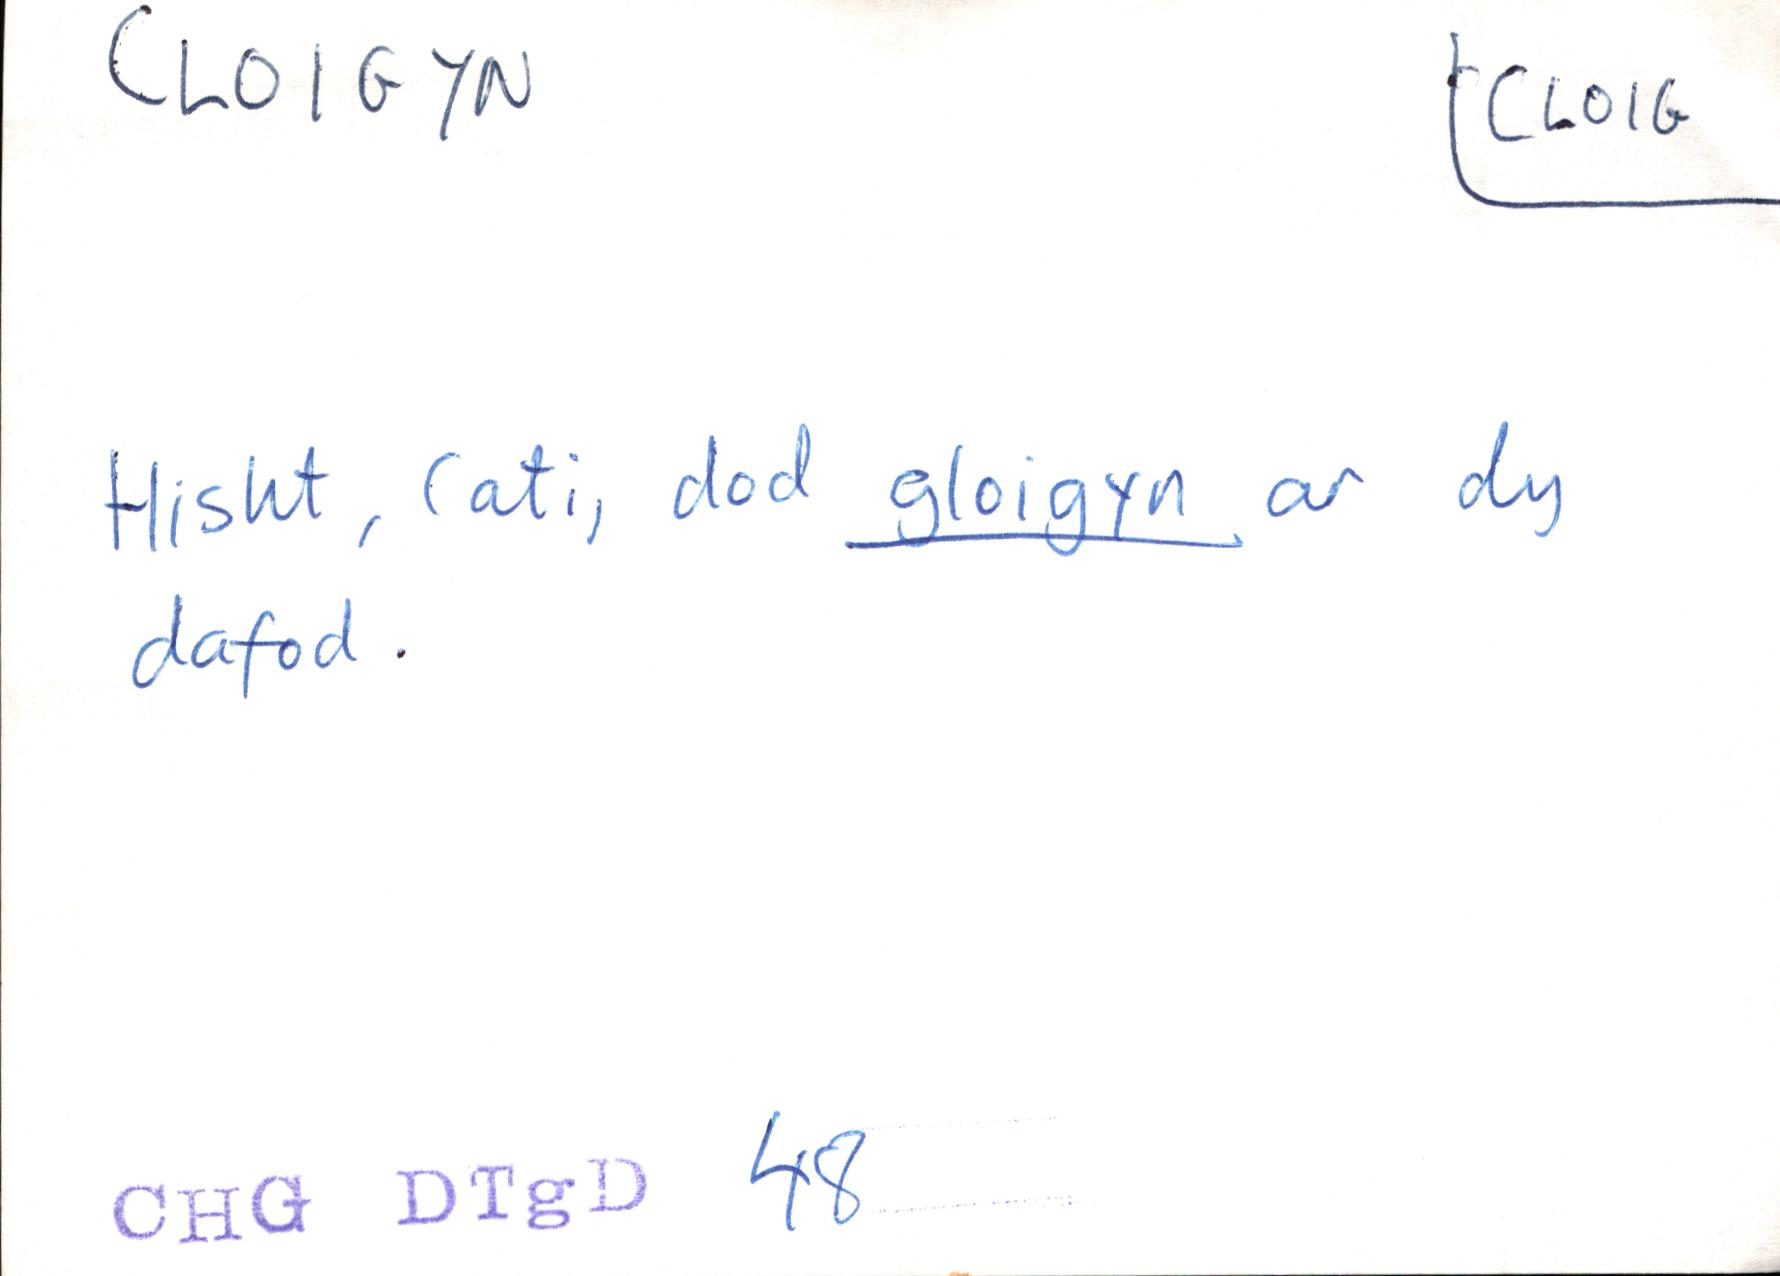 CLOIGYN
CLOIG
Hisht, Cati, dod gloigyn ar dy
dafod.
CHG DTgD 48